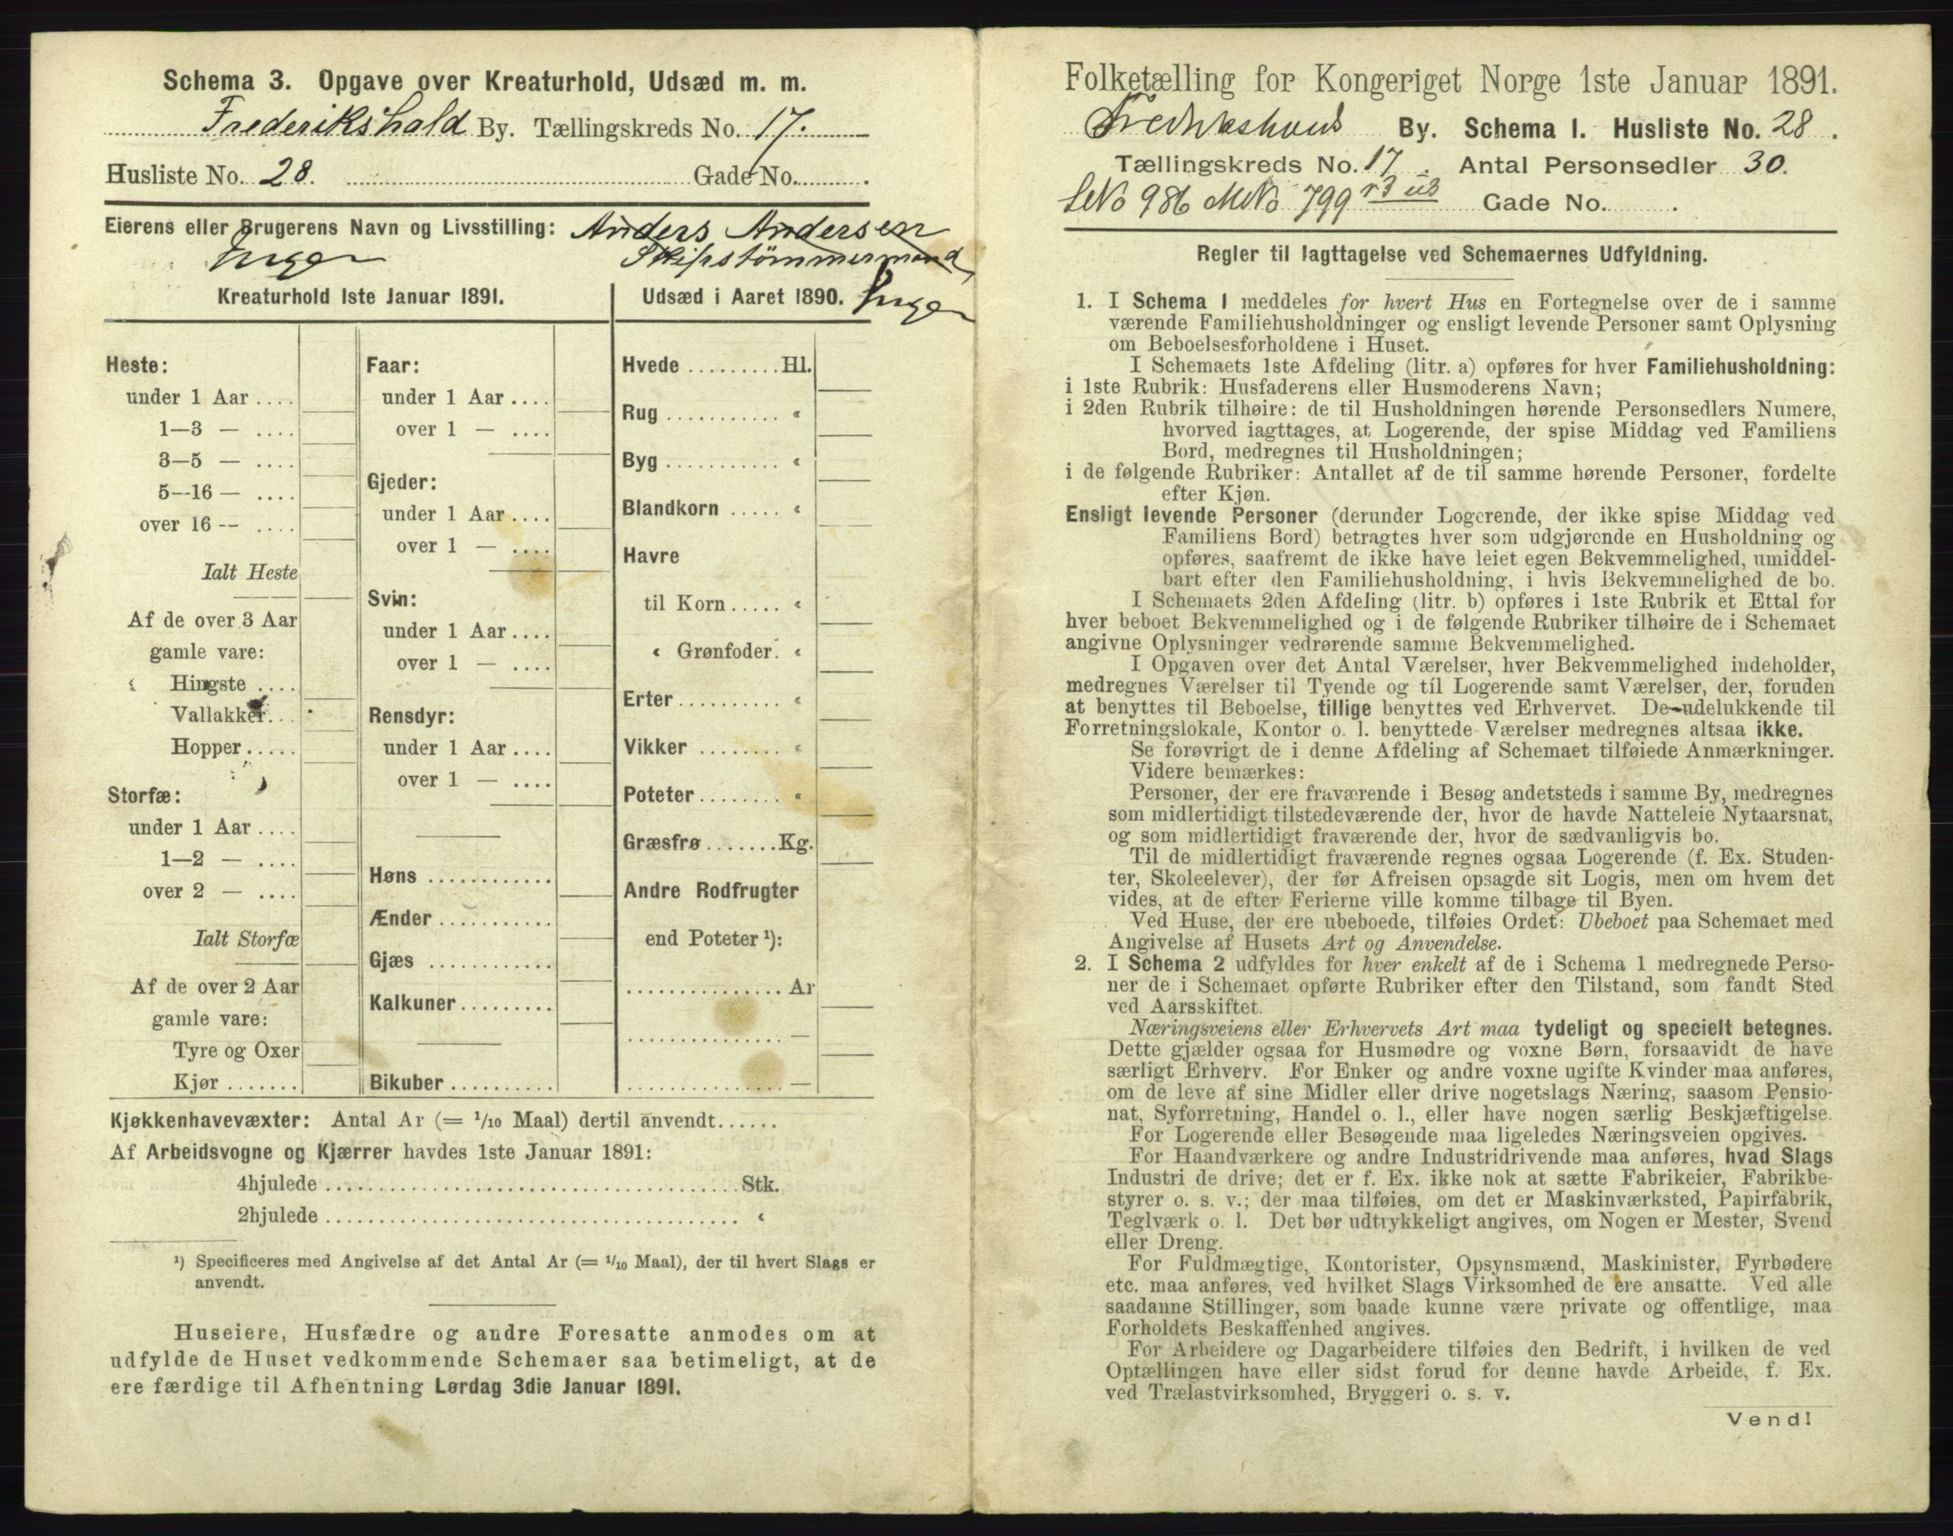 Schema 3. Opgave over Kreaturhold, Udsæd m. m.
Frederikshald By. Tællingskreds No. 17.
Husliste No. 28. Gade No.
Eierens eller Brugerens Navn og Livsstilling: Anders Andersen
Ingen Skibstømmermand
Kreaturhold 1ste Januar 1891.
Udsæd i Aaret 1890. Ingen
Heste:
under 1 Aar ....
1—3 — ....
3—5 — ....
5—16 — ....
over 16 — ....
Ialt Heste
Af de over 3 Aar
gamle vare:
Hingste ....
Vallakker...
Hopper.....
Storfæ:
under 1 Aar ....
1—2 — ....
over 2 — ....
Ialt Storfæ
Af de over 2 Aar
gamle vare:
Tyre og Oxer
Kjør .......
Faar:
under 1 Aar ....
over 1 — ....
Gjeder:
under 1 Aar ....
over 1 — ....
Svin:
under 1 Aar....
over 1 — ....
Rensdyr:
under 1 Aar ....
over 1 — ....
Høns ............
Ænder ............
Gjæs ............
Kalkuner.........
Bikuber ..........
Hvede .........Hl.
Rug ........... “
Byg ........... “
Blandkorn ..... “
Havre
til Korn ..... “
“ Grønfoder. “
Erter .......... “
Vikker ......... “
Poteter ........ “
Græsfrø .......Kg.
Andre Rodfrugter
end Poteter ¹):
............... Ar
............... —
............... —
Kjøkkenhavevæxter: Antal Ar (= 1/10 Maal) dertil anvendt......
Af Arbeidsvogne og Kjærrer havdes 1ste Januar 1891:
4hjulede ........................................ Stk.
2hjulede ........................................ “
¹) Specificeres med Angivelse af det Antal Ar (= 1/10 Maal), der til hvert Slags er
anvendt.
Huseiere, Husfædre og andre Foresatte anmodes om at
udfylde de Huset vedkommende Schemaer saa betimeligt, at de
ere færdige til Afhentning Lørdag 3die Januar 1891.
Folketælling for Kongeriget Norge 1ste Januar 1891.
By. Schema 1. Husliste No. 28.
Tællingskreds No. 17. Antal Personsedler 30.
No 986 MNo 799 Gade No.
Regler til Iagttagelse ved Schemaernes Udfyldning.
1. I Schema 1 meddeles for hvert Hus en Fortegnelse over de i samme
værende Familiehusholdninger og ensligt levende Personer samt Oplysning
om Beboelsesforholdene i Huset.
I Schemaets 1ste Afdeling (litr. a) opføres for hver Familiehusholdning:
i 1ste Rubrik: Husfaderens eller Husmoderens Navn;
i 2den Rubrik tilhøire: de til Husholdningen hørende Personsedlers Numere,
hvorved iagttages, at Logerende, der spise Middag ved Familiens
Bord, medregnes til Husholdningen;
i de følgende Rubriker: Antallet af de til samme hørende Personer, fordelte
efter Kjøn.
Ensligt levende Personer (derunder Logerende, der ikke spise Middag ved
Familiens Bord) betragtes hver som udgjørende en Husholdning og
opføres, saafremt de ikke have leiet egen Bekvemmelighed, umiddel-
bart efter den Familiehusholdning, i hvis Bekvemmelighed de bo.
I Schemaets 2den Afdeling (litr. b) opføres i 1ste Rubrik et Ettal for
hver beboet Bekvemmelighed og i de følgende Rubriker tilhøire de i Schemaet
angivne Oplysninger vedrørende samme Bekvemmelighed.
I Opgaven over det Antal Værelser, hver Bekvemmelighed indeholder,
medregnes Værelser til Tyende og til Logerende samt Værelser, der, foruden
at benyttes til Beboelse, tillige benyttes ved Erhvervet. De udelukkende til
Forretningslokale, Kontor o. l. benyttede Værelser medregnes altsaa ikke.
Se forøvrigt de i denne Afdeling af Schemaet tilføiede Anmærkninger.
Videre bemærkes:
Personer, der ere fraværende i Besøg andetsteds i samme By, medregnes
som midlertidigt tilstedeværende der, hvor de havde Natteleie Nytaarsnat,
og som midlertidigt fraværende der, hvor de sædvanligvis bo.
Til de midlertidigt fraværende regnes ogsaa Logerende (f. Ex. Studen-
ter, Skoleelever), der før Afreisen opsagde sit Logis, men om hvem det
vides, at de efter Ferierne ville komme tilbage til Byen.
Ved Huse, der ere ubeboede, tilføies Ordet: Ubeboet paa Schemaet med
Angivelse af Husets Art og Anvendelse.
2. I Schema 2 udfyldes for hver enkelt af de i Schema 1 medregnede Perso-
ner de i Schemaet opførte Rubriker efter den Tilstand, som fandt Sted
ved Aarsskiftet.
Næringsveiens eller Erhvervets Art maa tydeligt og specielt betegnes.
Dette gjælder ogsaa for Husmødre og voxne Børn, forsaavidt de have
særligt Erhverv. For Enker og andre voxne ugifte Kvinder maa anføres,
om de leve af sine Midler eller drive nogetslags Næring, saasom Pensio-
nat, Syforretning, Handel o. l., eller have nogen særlig Beskjæftigelse.
For Logerende eller Besøgende maa ligeledes Næringsveien opgives.
For Haandværkere og andre Industridrivende maa anføres, hvad Slags
Industri de drive; det er f. Ex. ikke nok at sætte Fabrikeier, Fabrikbe-
styrer o. s. v.; der maa tilføies, om det er Maskinværksted, Papirfabrik,
Teglværk o. l. Det bør udtrykkeligt angives, om Nogen er Mester, Svend
eller Dreng.
For Fuldmægtige, Kontorister, Opsynsmænd, Maskinister, Fyrbødere
etc. maa anføres, ved hvilket Slags Virksomhed de ere ansatte. Ved alle
saadanne Stillinger, som baade kunne være private og offentlige, maa
Forholdets Beskaffenhed angives.
For Arbeidere og Dagarbeidere tilføies den Bedrift, i hvilken de ved
Optællingen have eller sidst forud for denne havde Arbeide, f. Ex.
ved Trælastvirksomhed, Bryggeri o. s. v.
Vend!